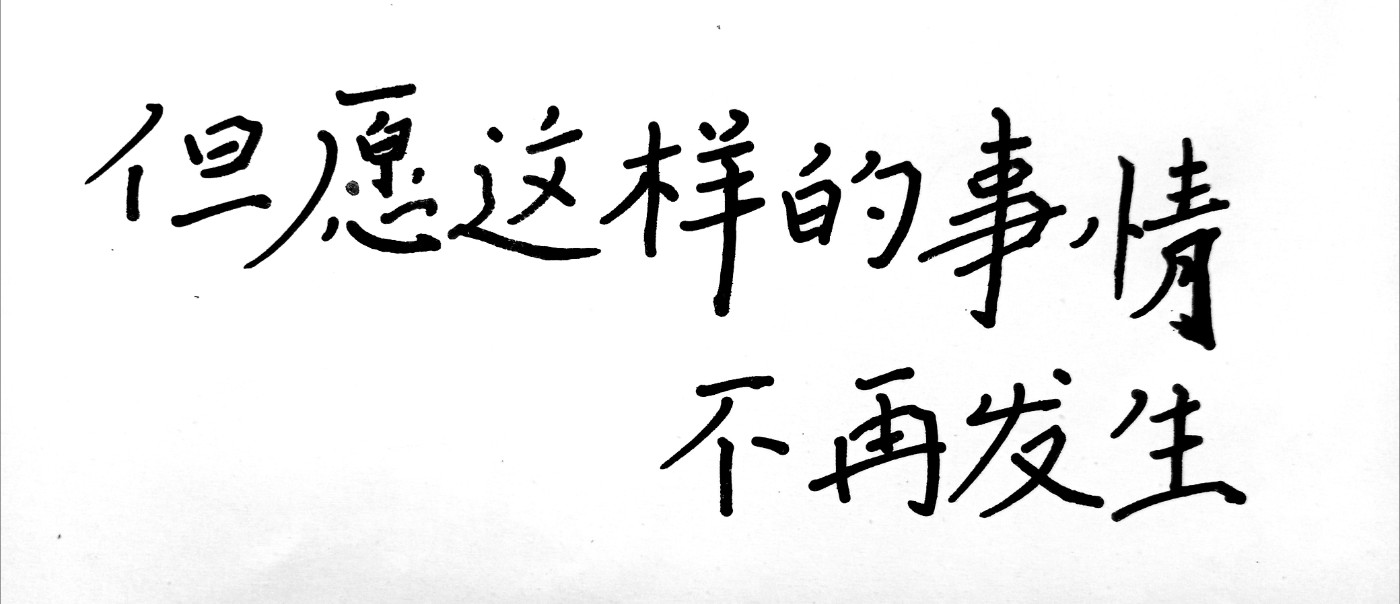 但愿这样的事情
不再发生